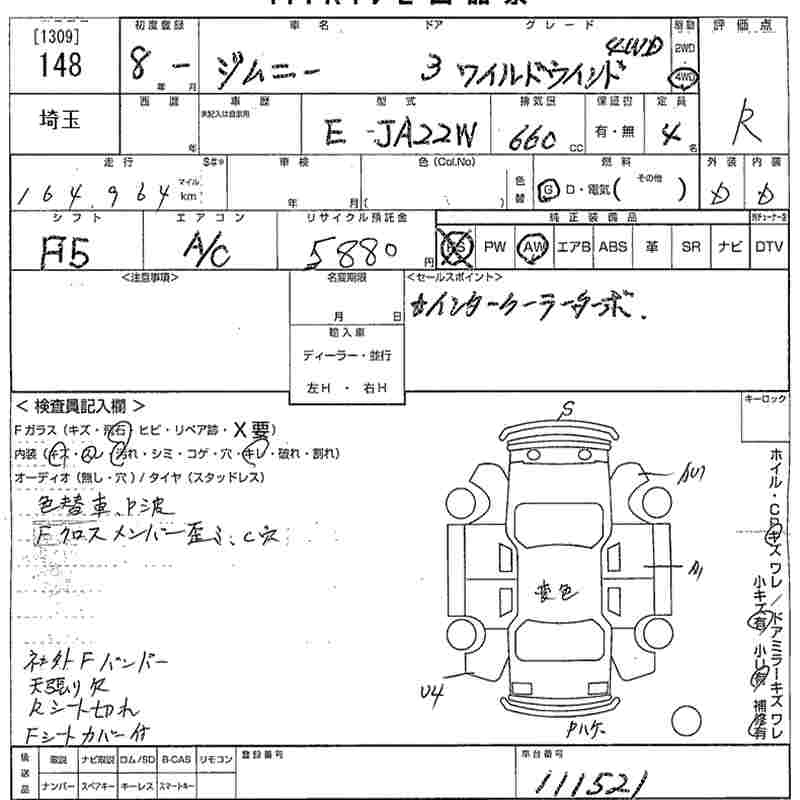 [1309]
148
初度登録 車名 ドア グレード 駆動 評価点
8 年 月 ジムニー 3 ワイルドウインド 4WD 2WD 4WD
R
埼玉
西暦 車歴 型式 排気量 保証書 定員
年 未記入は自家用 E-JA22W 660 CC 有・無 4 名
走行 S#* 車検 色 (Col.No) 燃料 外装 内装
164,964 マイル km 年 月 ( ) 色替 G D・電気( その他 ) D D
シフト エアコン リサイクル預託金 純正装備品
A5 A/C 5880 円 PS PW AW エアB ABS 革 SR ナビ DTV
<注意事項> 名変期限 <セールスポイント>
月 日 ☆インタークーラーターボ.
輸入車
ディーラー・並行
左H ・ 右H
<検査員記入欄> キーロック
Fガラス (キズ・飛石・ヒビ・リペア跡・X要)
内装 (キズ・スレ・汚れ・シミ・コゲ・穴・キレ・破れ・割れ)
オーディオ (無し・穴) / タイヤ (スタッドレス)
色替車、P波
Fクロスメンバー歪ミ、C穴
S
A1
変色
U4
Pハゲ
社外Fバンパー
天張り欠
Rシート切れ
Fシートカバー付
ホイル・CPキズワレ/ドアミラーキズワレ
小キズ有 小凹有 補修有
後送品 取説 ナビ取説 ロム/SD B-CAS リモコン 登録番号 車台番号
ナンバー スペアキー キーレス スマートキー 111521